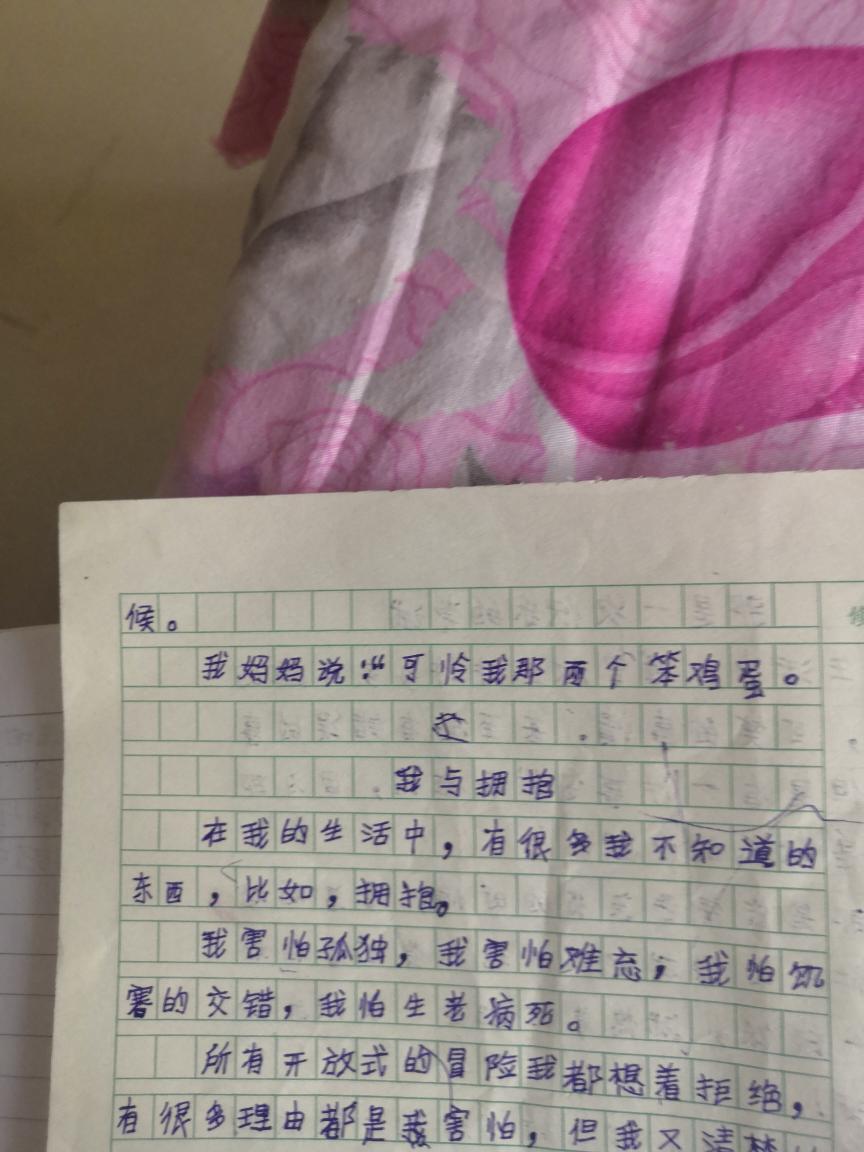 候。
我妈妈说：“可怜我那两个笨鸡蛋。
我与拥抱
在我的生活中，有很多我不知道的
东西，比如，拥抱。
我害怕孤独，我害怕难忘，我怕饥
寒的交错，我怕生老病死。
所有开放式的冒险我都想着拒绝，
有很多理由都是我害怕，但我又清楚